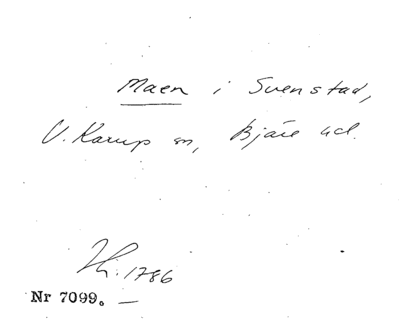 Maen i Svenstad,
V. Karup sn, Bjäre hd.
1786
Nr 7099.